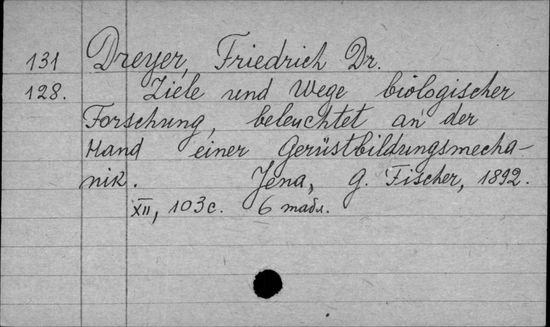 131 Dreyer, Friedrich Dr.
128. Ziele und Wege biologischer
Forschung, beleuchtet an der
Hand einer Gerüstbildungsmecha-
nik. Jena, G. Fischer, 1892.
XII, 103 с. 6 табл.